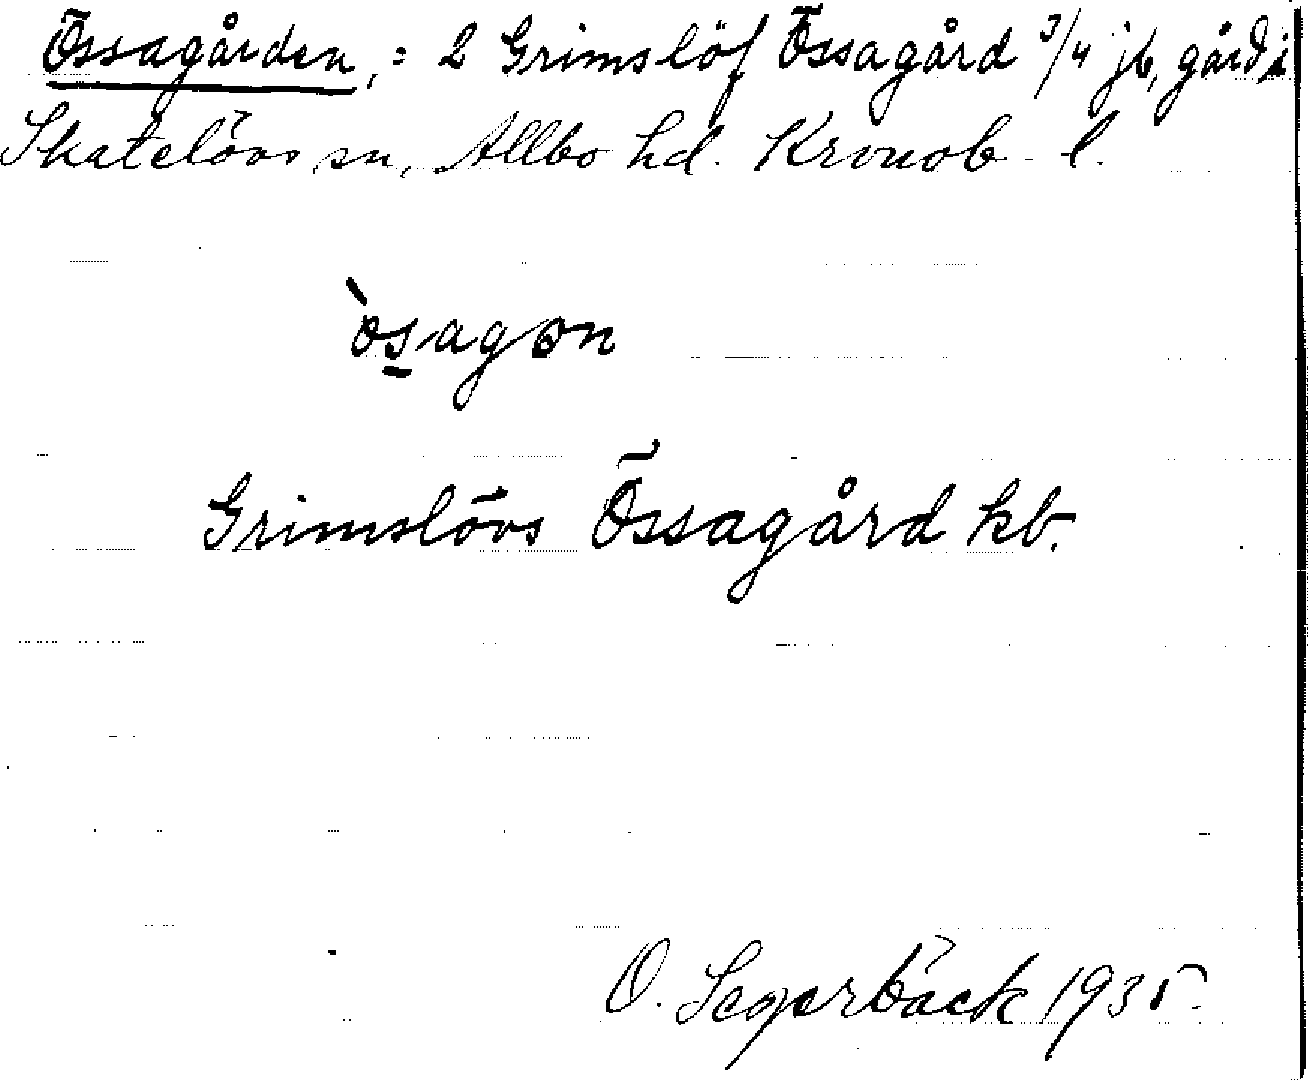 Össagården, = 2 Grimslöf Össagård 3/4 jb, gård i
Skatelövs sn, Allbo hd. Kronob. l.
`ɷsagɷn
Grimslövs Össagård kb.
O. Segerbäck 1935.